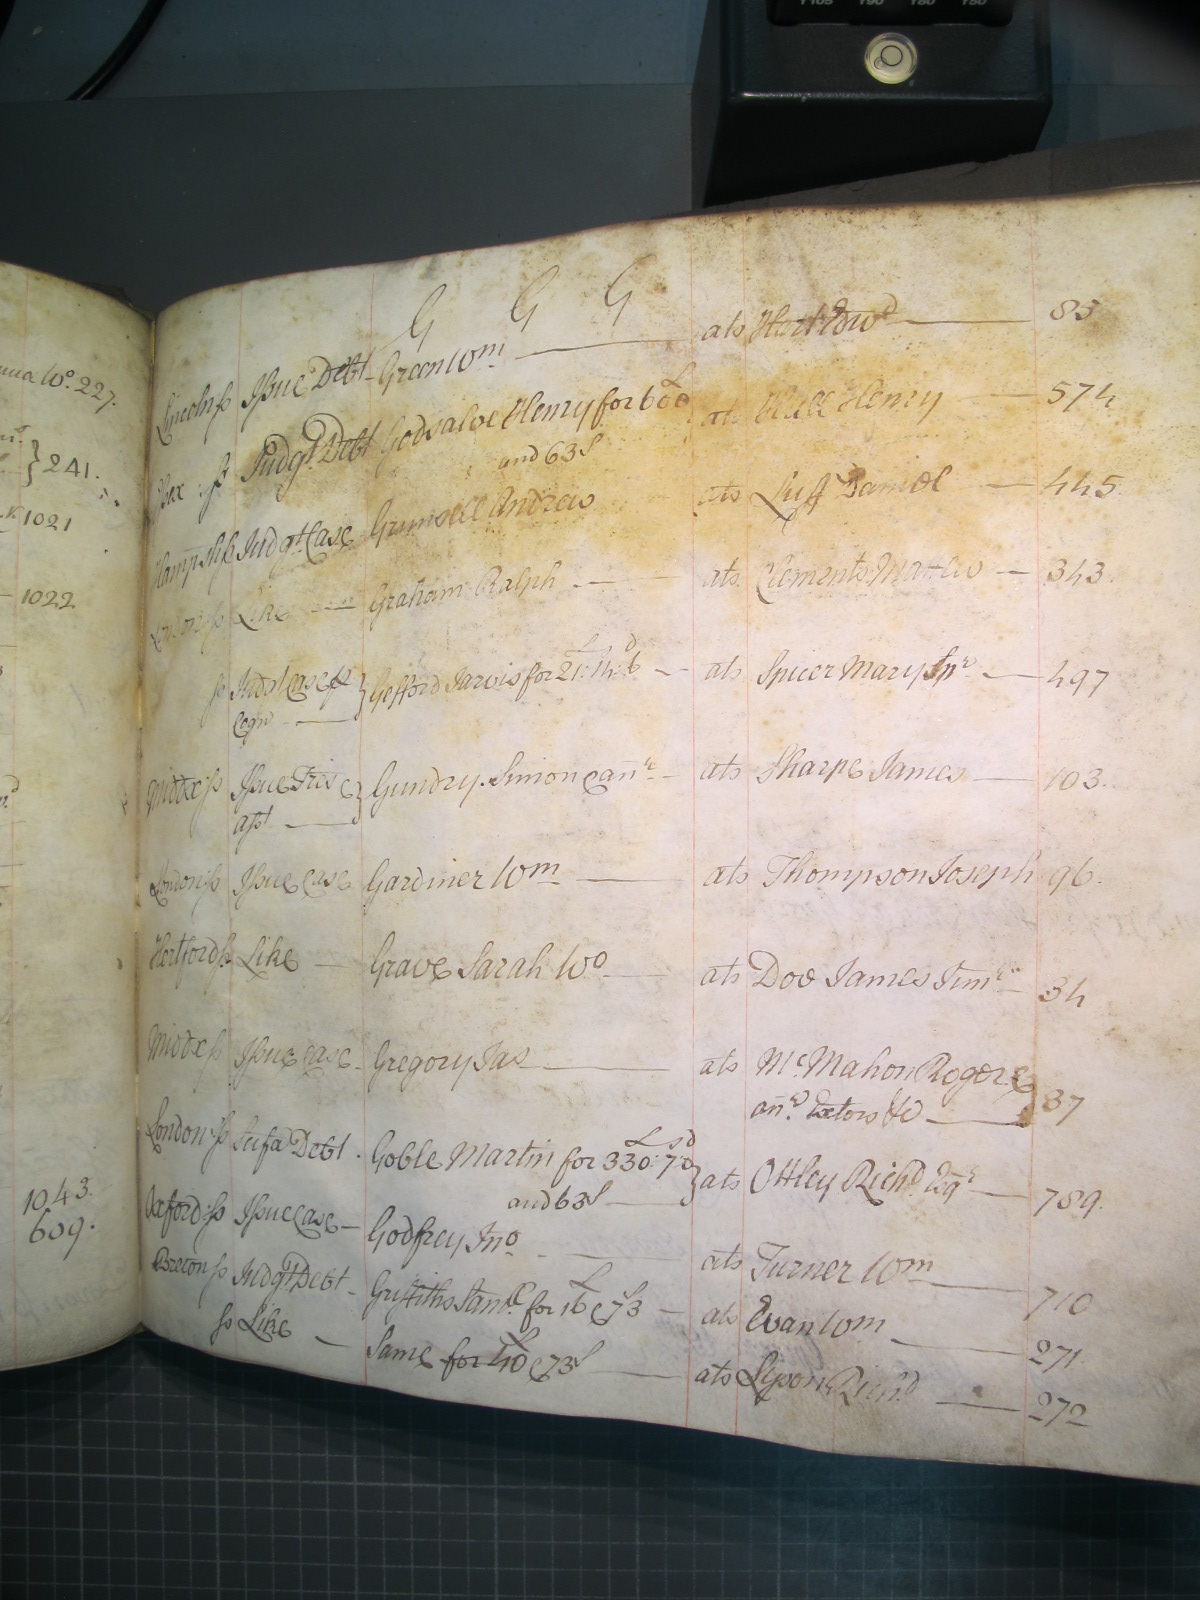 Y105 Y90 Y80 Y50
G G G
Lincoln ss Issue Debt Green Wm ats Hort Edwd 85
ss Judgt Debt Godsalve Henry for 600L ats Hall Henry 574
and 63s
Hampsh ss Judgt Case Grimsell Andrew ats Luff Daniel 445
London ss Like Graham Ralph ats Clements Mathw 343
ss Judgt Case p } Gefford Jarvis for 21L:14:6d ats Spicer Mary Spr 497
Cogn
Middx ss Issue Tres & } Gundry Simon & anr ats Sharpe James 103
asst
London ss Issue Case Gardiner Wm ats Thompson Joseph 96.
Hertford ss Like Grave Sarah Wo ats Doe James Junr 34
Middx ss Issue Case Gregory Jas ats McMahon Roger & } 37
anr Exetors &c
London ss Scifa Debt Goble Martin for 330L:7s:0d } ats Ottley Richd Esqr 789.
and 63s
Oxford ss Issue Case Godfrey Jno ats Turner Wm 710
Brecon ss Judgt Debt Griffiths Saml for 16L & 73s ats Evan Wm 271
ss Like Same for 40L & 73s ats Richd 272
Wo. 227.
} 241.
1021
1022
1043.
609.